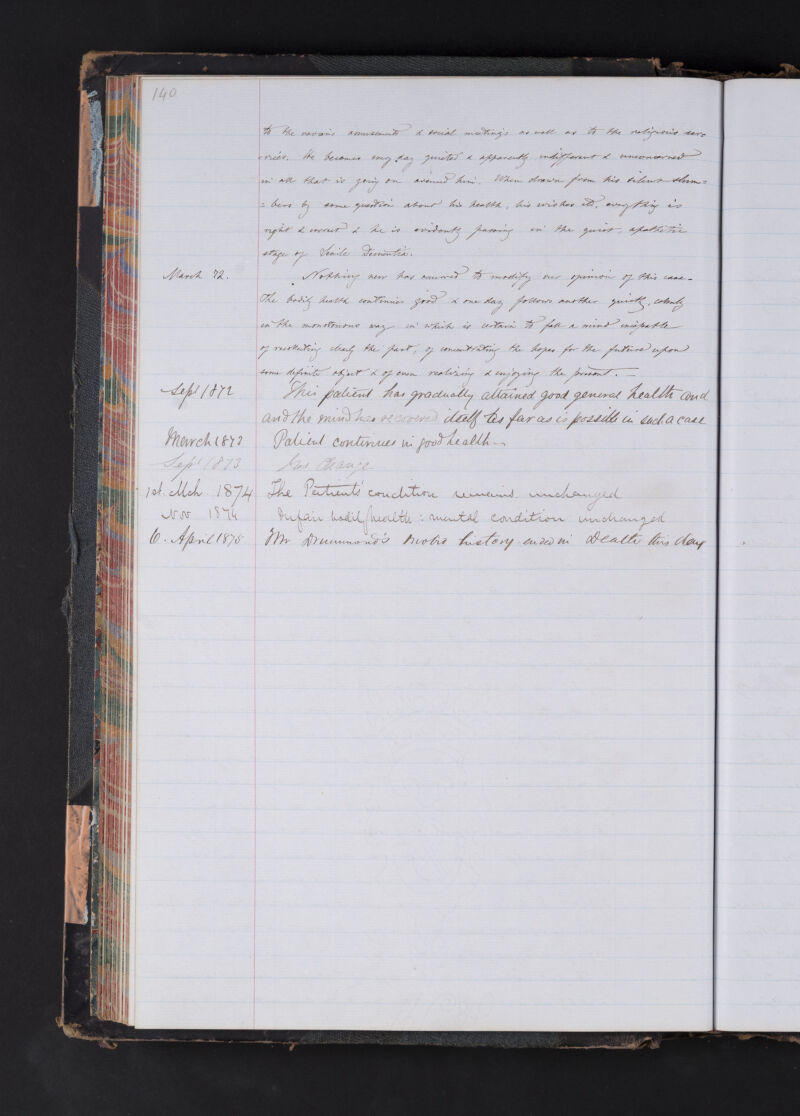 140
to the various amusements & social meetings as well as to the religious ser=
=vices. He becomes every day quieter & apparently indifferent & unconcerned
in all that is going on around him. When drawn from his silent slum=
=bers by some question about his health, his wishes etc, everything is
right & correct & he is evidently passing in the quiet, apathetic
stage of Senile Dementia.
March 72. Nothing new has occurred to modify our opinion of this case.
The bodily health continues good & one day follows another quietly, calmly
in the monotonous way in which is certain to fall a mind incapable
of recollecting clearly the past, of concentrating the hopes for the future upon
some definite object & of even realizing & enjoying the present. —
Sept 1872 This patient has gradually attained good general health and
and the mind has recovered itself as far as is possible in such a case
March 1873 Patient continues in good health —
Sept 1873 No change
1st. Mch 1874 The Patient's condition remains unchanged
Nov 1874 In fair bodily health : mental condition unchanged
6. April 1875 Mr Drummond's history ended in Death this day